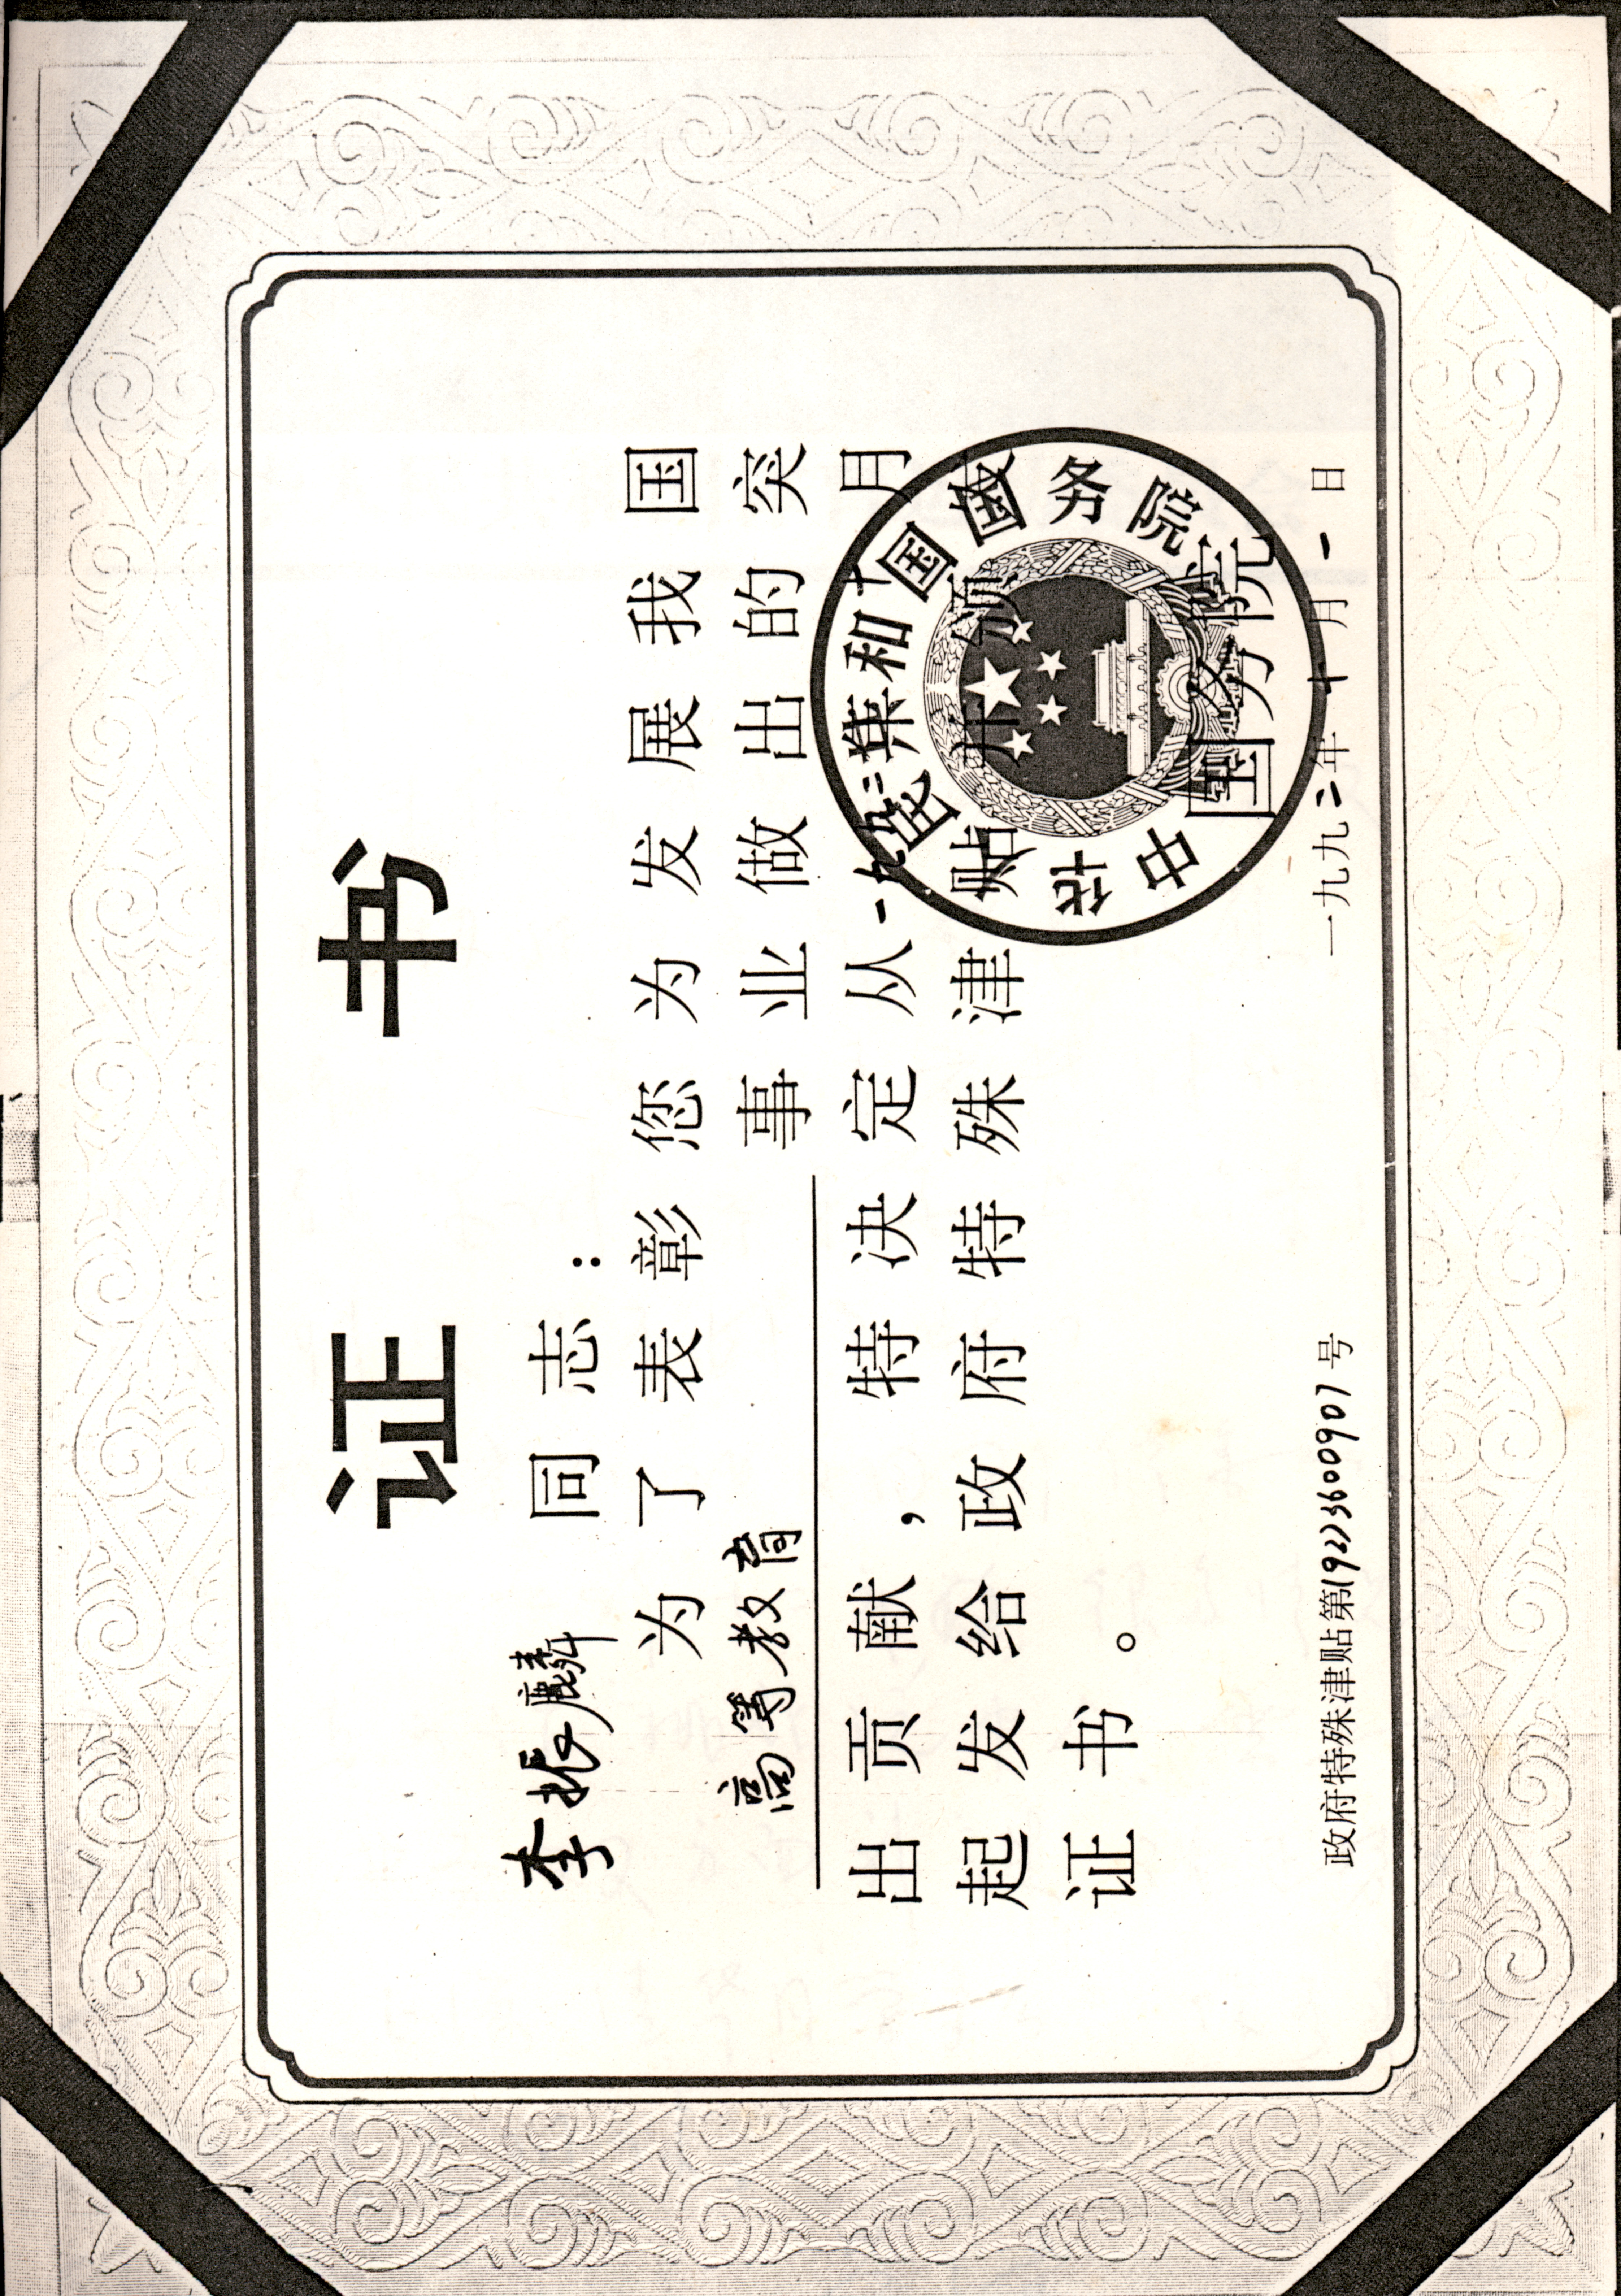 证书
李振麟同志：
为了表彰您为发展我国
高等教育事业做出的突
出贡献，特决定从一九九二年十月
起发给政府特殊津贴并颁发
证书。
中华人民共和国国务院
国务院
政府特殊津贴第(92)3600907号
一九九二年十月一日